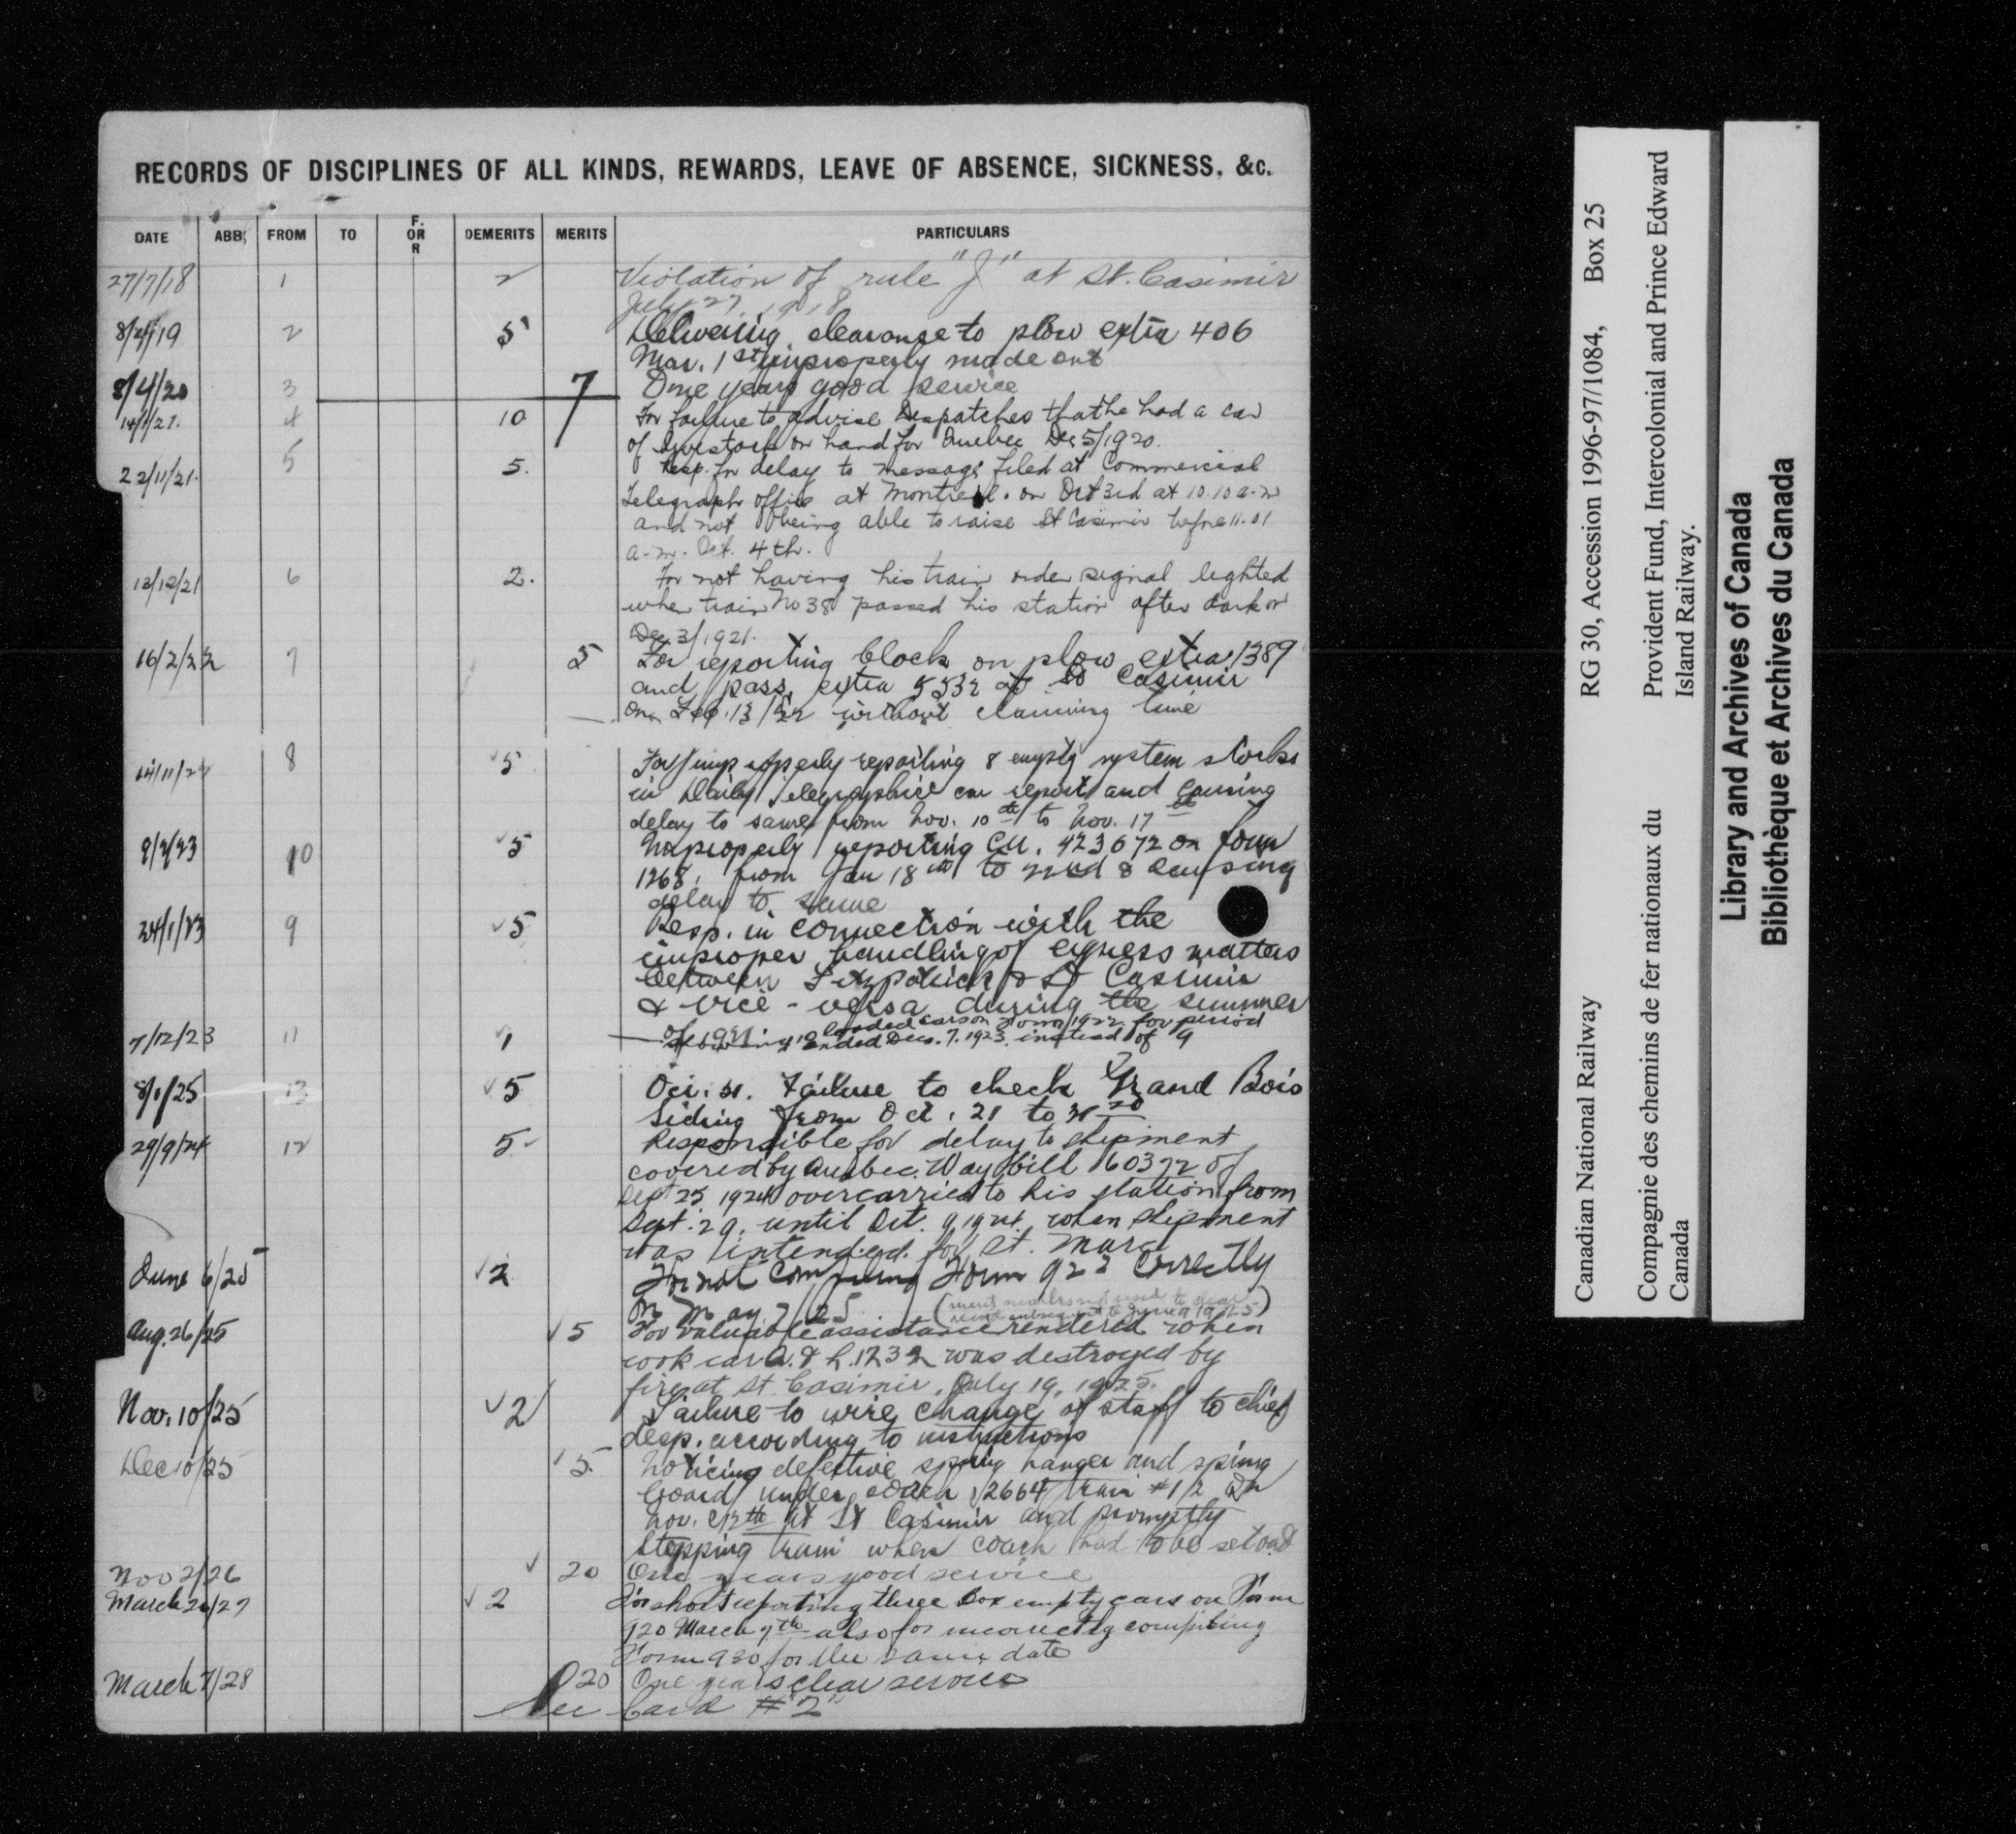 RECORDS OF DISCIPLINES OF ALL KINDS, REWARDS, LEAVE OF ABSENCE, SICKNESS, &c.
DATE ABB; FROM TO F. OR R DEMERITS MERITS PARTICULARS
27/7/18 1 2 Violation of rule "J" at St. Casimir
July 27, 1918
19 2 5 Delivering clearance to plow extra 406
Mar. 1st improperly made out
8/4/20 3 7 One years good service
14/1/21. 4 10 For failure to advise Despatcher that he had a car
of livestock on hand for Quebec Dec 5/1920.
22/11/21. 5 5. Resp. for delay to message filed at Commercial
Telegraph office at Montreal. on Oct 3rd at 10.10 a-m
and not being able to raise St Casimir before 11.01
a-m. Oct. 4th.
13/12/21 6 2. For not having his train order signal lighted
when train No 38 passed his station after dark on
Dec 3/1921.
16/2/22 7 5 For reporting block on plow extra 1389
and pass. extra 5532 at St Casimir
on Feb. 13/22 without claiming time
8 5 For improperly reporting 8 empty system stocks
in Daily Telegraphic car report and causing
delay to same from Nov. 10th to Nov. 17th
10 5 Improperly reporting CN. 423672 on form
1268, from Jan 18th to 22nd & causing
delay to same
24/1/23 9 5 Resp. in connection with the
improper handling of express matters
between Fitzpatrick & St Casimir
& vice-versa during the summer
of
7/12/23 11 1 loaded cars on Form 1922 for period
ended Dec. 7. 1923. instead of 9
8/1/25 13 5 Oct. 31. Failure to check Grand Bois
Siding from Oct. 21 to
29/9/24 12 5- Responsible for delay to shipment
covered by Quebec. Way bill 160372 of
Sept 25 1924 overcarried to his station from
Sept. 29. until Oct. 9, 1924. when shipment
was intended for St. Marc
June 6/25 2 For not compiling Form 922 correctly
on May 7/25 (merit marks not used to clear
record subsequent to June 1925)
Aug. 26/25 5 For valuable assistance rendered when
cook car 1232 was destroyed by
fire at St Casimir, July 19, 1925.
Nov. 10/25 2 Failure to wire change of staff to chief
desp. according to instructions
Dec 10/25 5. Noticing defective spring hanger and spring
board under coach 2664 train #1/2 On
Nov. at St Casimir and promptly
stopping train when coach had to be set
Nov 2/26 20 One years good service
March 26/27 2 For short reporting three box empty cars on Form
920 March 7th also for incorrectly compiling
Form 930 for the same date
March 7/28 20 One years clear service
See Card #"2"
Canadian National Railway RG 30, Accession 1996-97/1084, Box 25
Compagnie des chemins de fer nationaux du Canada
Provident Fund, Intercolonial and Prince Edward Island Railway.
Library and Archives of Canada
Bibliothèque et Archives du Canada